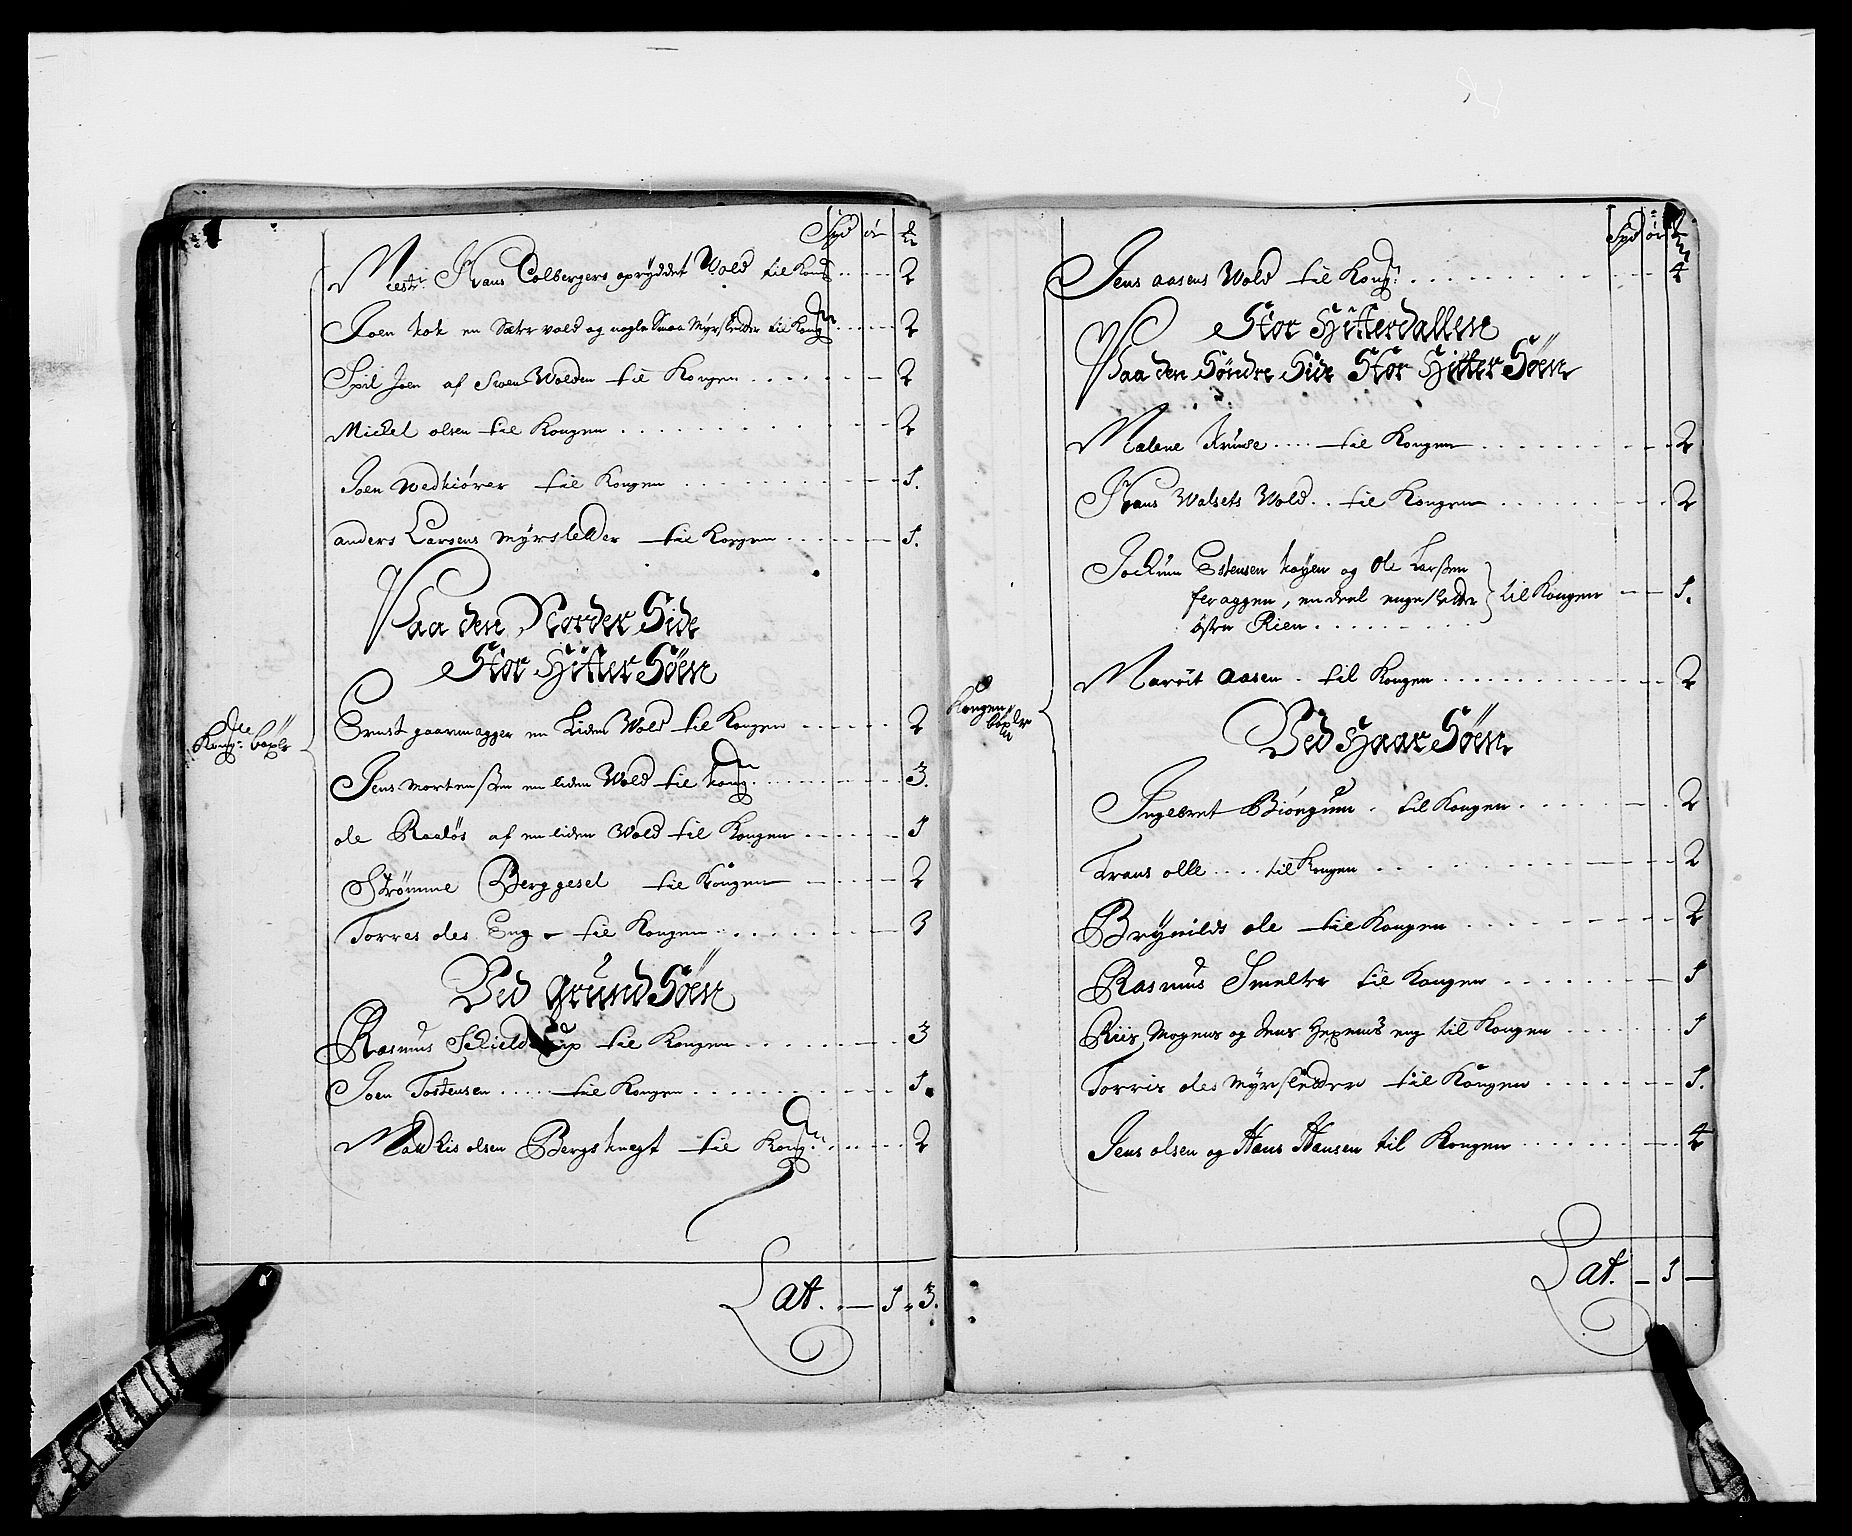 Spd ör
Mestr Hans Colbergers opryddet Wold til Kong 2
Joen kok en Sætr vold og nogle Smaa Myrsletder til Kong 2
Spil Joen af Svens Wolden til Kongen 2
Mickel olsen til Kongen 2
Joen Wedkiörer til Kongen 1.
anders Larsens myrsletder til Kongen 1.
Paa den Norder Side
Stor Hitter Söen
Kong: böxler
Ernst gaarmagger en Liden Wold til Kongen 2
Jens mortenßen en liden Wold til Kong 3.
ole Raadös af en liden Wold til Kongen 1
Strömme Berggesel til Kongen 2
Torres oles Eng til Kongen 3
Ved Grund Söen
Rasmus Schield til Kongen 3
Joen Tostensen til Kongen 1.
Madkis olsen Bergsknegt til Kong: 2
Lat. — 1 - 3.
Spd ör
Jens aasens Wold til Kong: 4
Stor Hitterdallen
Paa den Söndre Side Stor Hitter Söen
Malene Kruuse til Kongen 2
Hans Walsets Wold til Kongen 2
Jockum Estensen köyen og Ole Larßen
feraggen, en deel engesletder til Kongen 1.
östen Rien
Marrit aasen til Kongen 2
Kongen böxler
Ved Haar Söen
Ingebret Biöngum til Kongen 2
Frans olle til Kongen 2
Brynilds ole til Kongen 2
Rasmus Smelter til Kongen 1
Riis Mogens og Jens eng til Kongen 1
Torris oles myrsletder til Kongen 1.
Jens olsen og Hans Hansen til Kongen 4
Lat. — 1 —